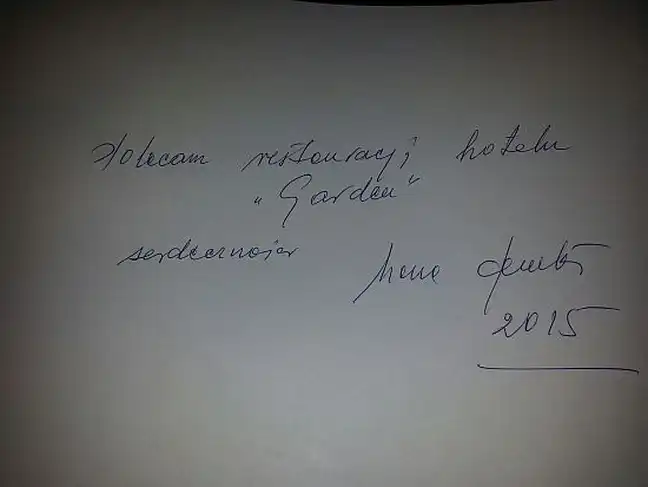 Polecam restauracji hotelu
"Garden"
serdeczności
2015